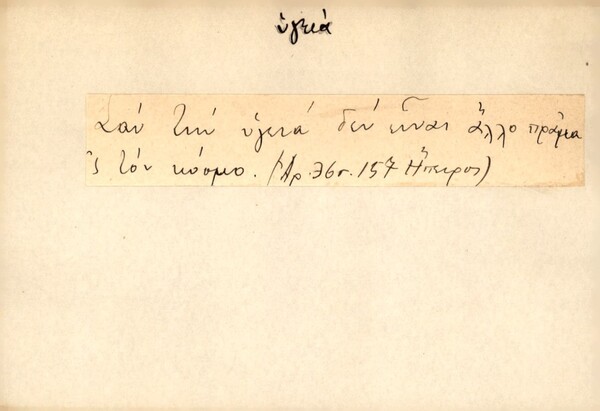 ὑγειά
Σάν τήν ὑγειά δέν εἶναι ἄλλο πρᾶμα
ς τόν κόσμο. (Ἀρ. 36 σ. 157 Ἤπειρος)